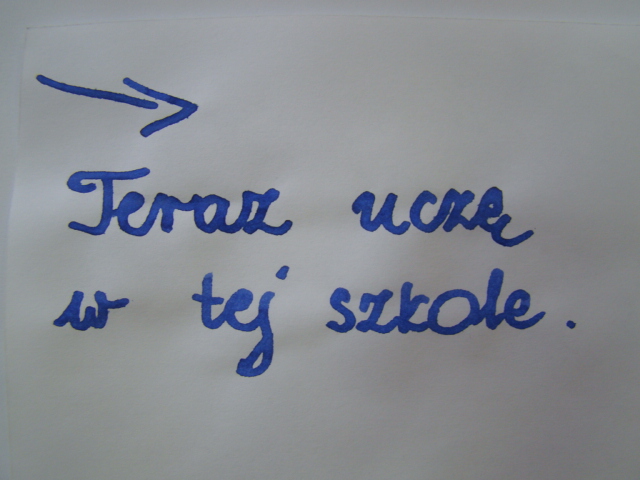 Teraz uczę
w tej szkole.